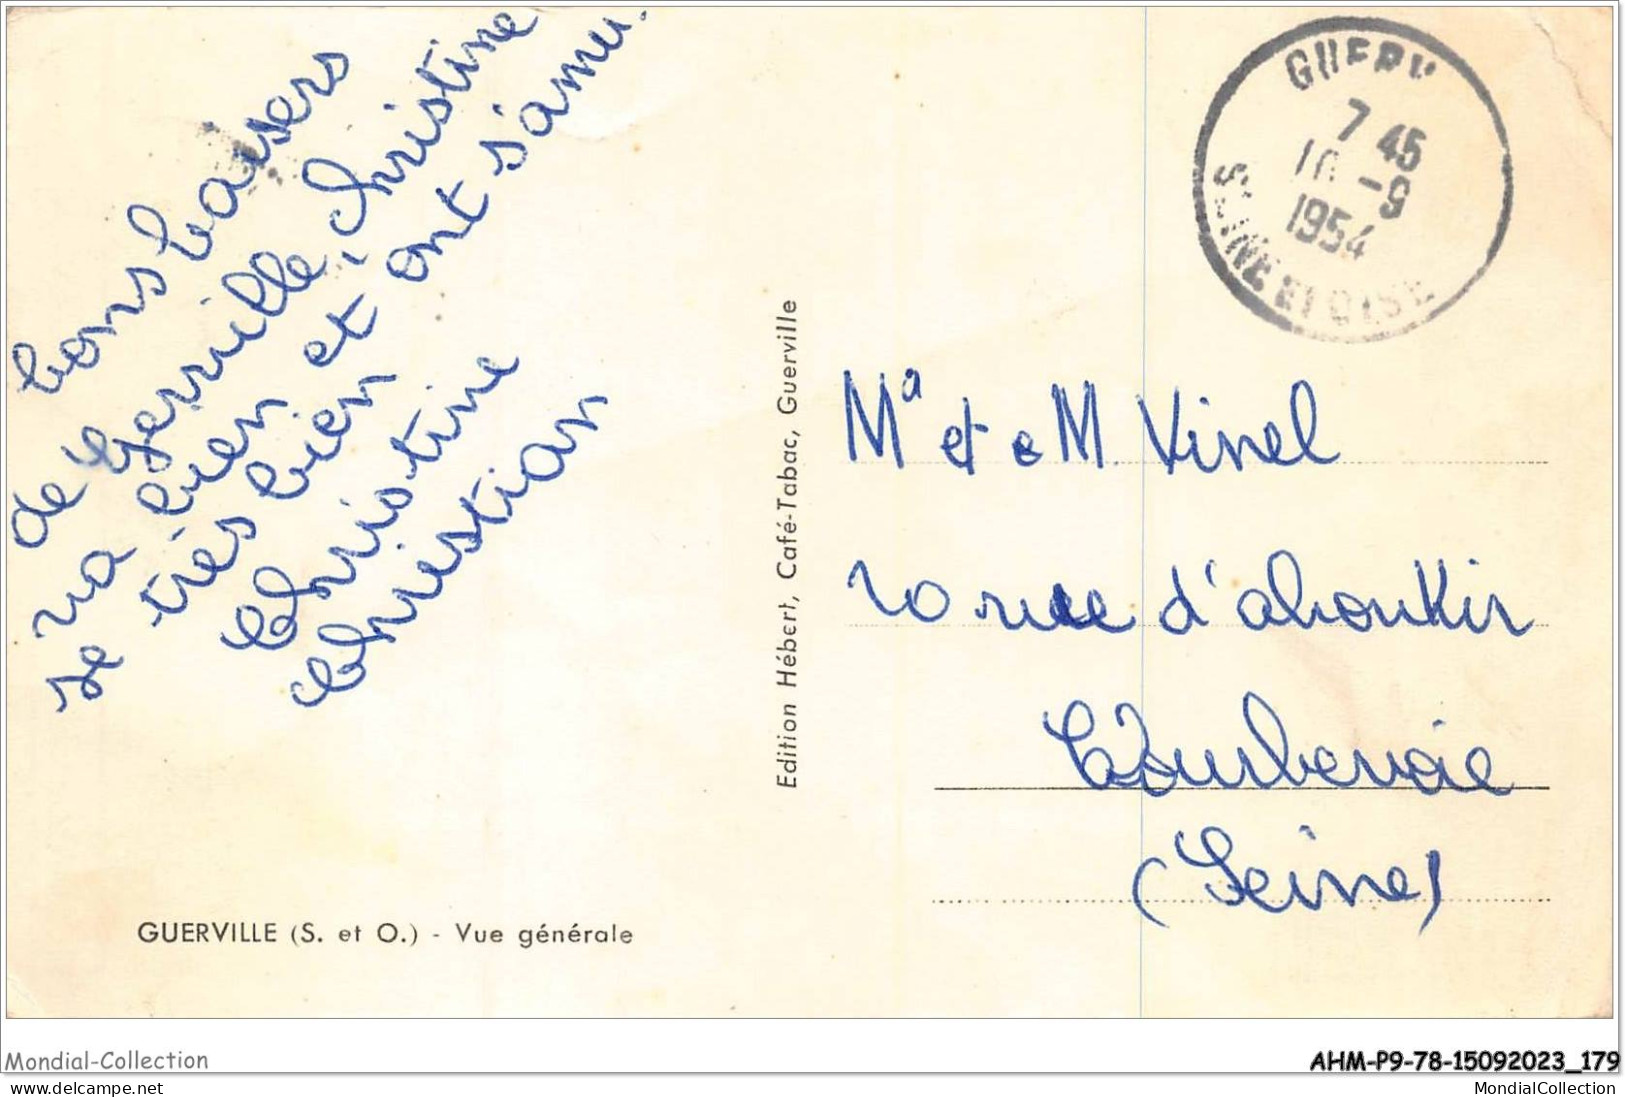 bons baisers
de Gerville, Christine
va bien et ont s'amu
se très bien
Christine
Christian
GUERVILLE (S. et O.) - Vue générale
Edition Hébert, Café-Tabac, Guerville
GUERV
7 45
10 -9
1954
SEINE ET OISE
Mª et M Vinel
20 rue d'aboukir
Courbevoie
(Seine)
Mondial-Collection
AHM-P9-78-15092023_179
www.delcampe.net
MondialCollection